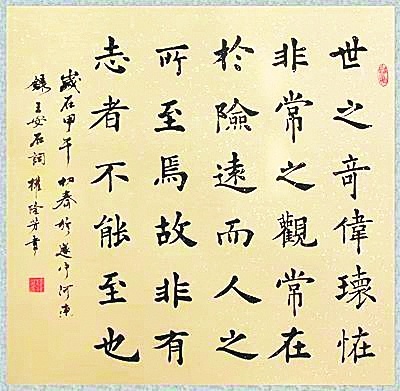 世之竒偉瓌恠
非常之觀常在
於險遠而人之
所至焉故非有
志者不能至也
歲在甲午初春於
錄王安石詞權書